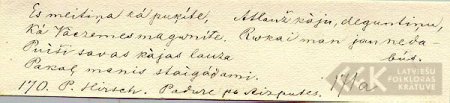 Es meitiņa kā puķīte, Atlauž kāju, deguntiņu,
Kā Vāczemes magonīte. Rokai man jau neda
Puiši savas kājas lauza būs.
Pakaļ manis staigādami.
170. P. Hirsch. Padure pa Aizputes. 171a
LATVIEŠU
FOLKLORAS
KRĀTUVE